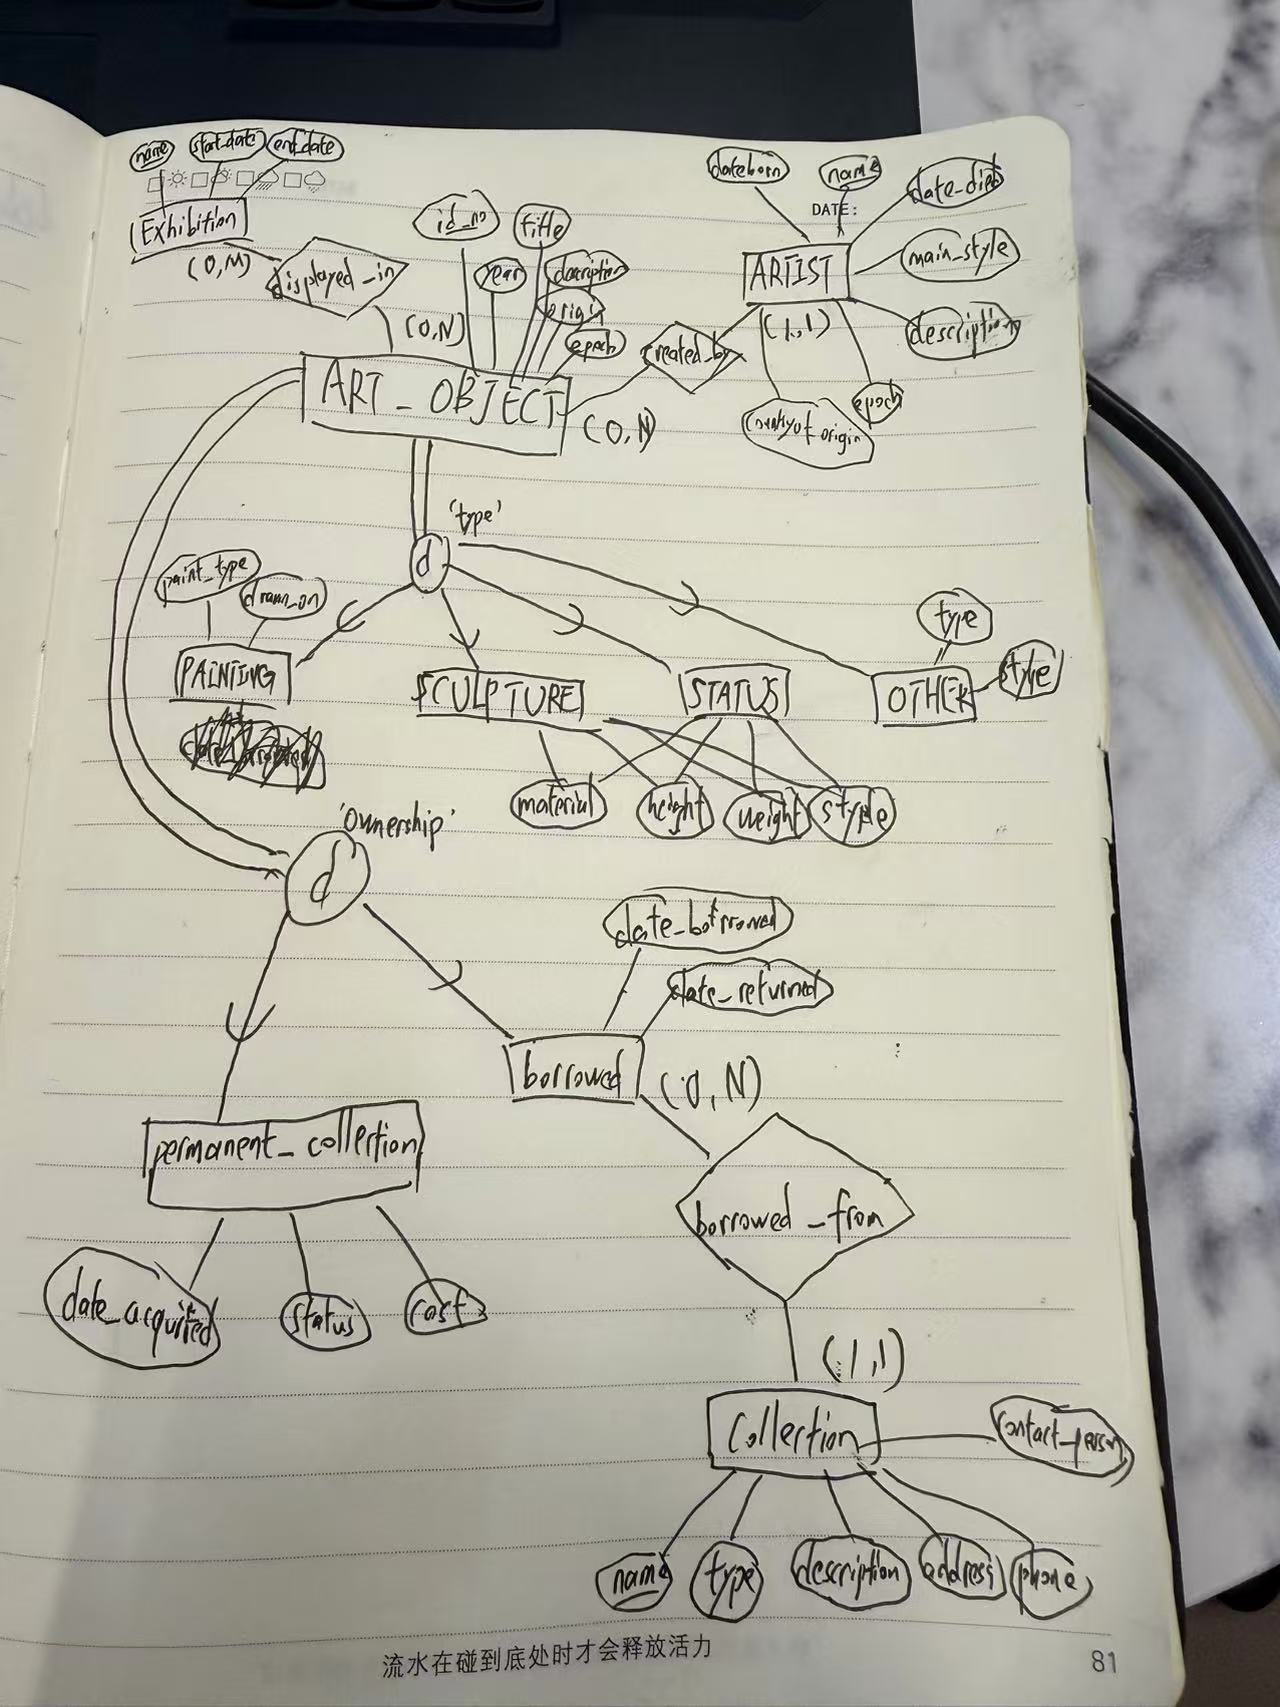 name
start_date
end_date
Exhibition
(0,M)
displayed_in
(0,N)
id_no
title
year
description
origin
epoch
dateborn
name
DATE:
date_died
ARTIST
main_style
(1,1)
description
created_by
epoch
countryof origin
ART_OBJECT
(0,N)
'type'
d
paint_type
drawn_on
type
style
PAINTING
SCULPTURE
STATUS
OTHER
material
height
weight
style
'ownership'
d
date_borrowed
date_returned
borrowed
(0,N)
permanent_collection
borrowed_from
date_acquired
status
cost
(1,1)
collection
contact_person
name
type
description
address
phone
流水在碰到底处时才会释放活力
81